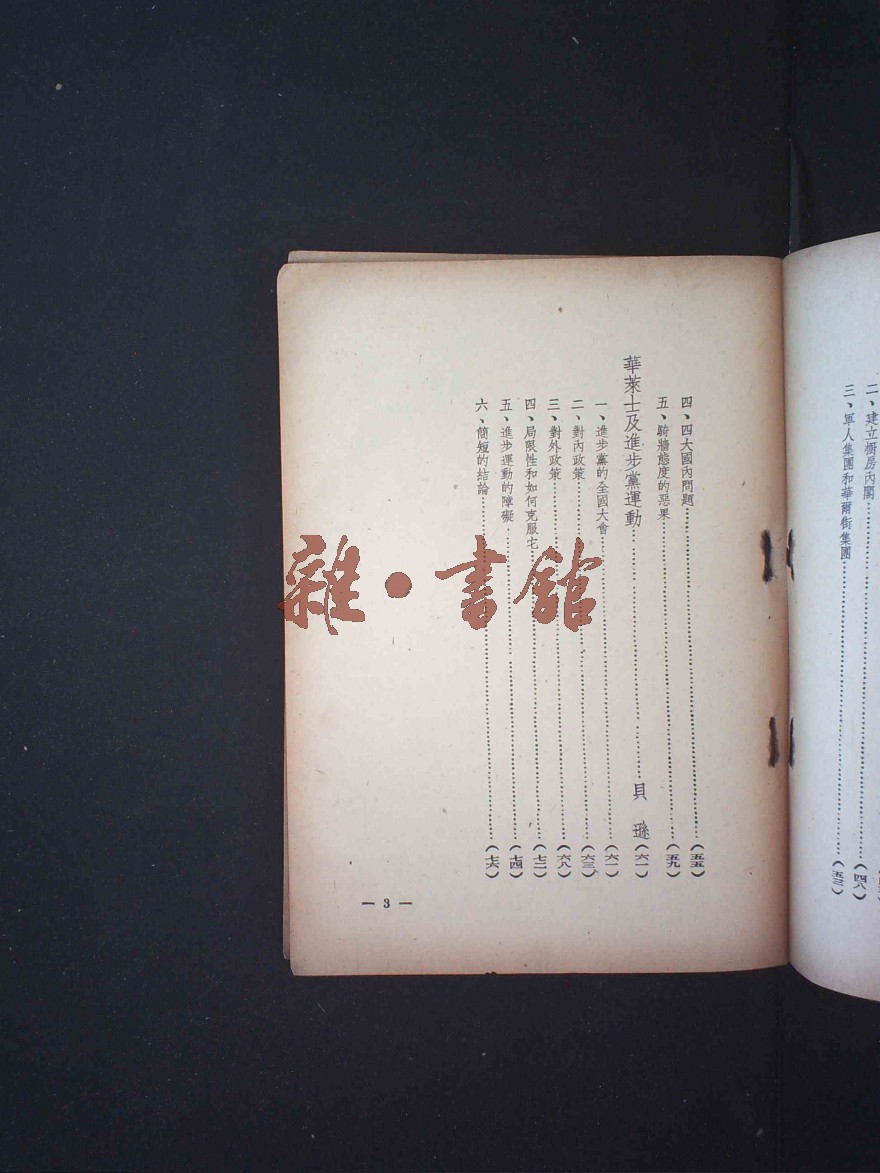 二、建立橱房內閣……(四八)
三、軍人集團和華爾街集團……(五三)
四、四大國內問題……(五五)
五、騎牆態度的惡果……(五九)
華萊士及進步黨運動……貝 遜(六一)
一、進步黨的全國大會……(六一)
二、對內政策……(六三)
三、對外政策……(六八)
四、局限性和如何克服它……(七二)
五、進步運動的障礙……(七四)
六、簡短的結論……(七六)
— 3 —
雜·書館